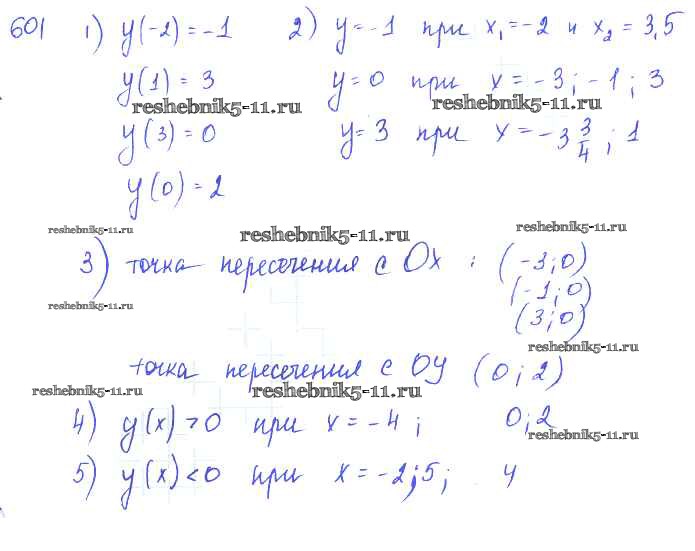 601 1) y(-2) = -1 2) y = -1 при x₁ = -2 и x₂ = 3,5
y(1) = 3 y = 0 при x = -3; -1; 3
reshebnik5-11.ru reshebnik5-11.ru
y(3) = 0 y = 3 при x = -3 3/4; 1
y(0) = 2
reshebnik5-11.ru reshebnik5-11.ru reshebnik5-11.ru
3) точка пересечения с Ox : (-3; 0)
(-1; 0)
reshebnik5-11.ru
(3; 0)
reshebnik5-11.ru
точка пересечения с Oy (0; 2)
reshebnik5-11.ru reshebnik5-11.ru
4) y(x) > 0 при x = -4; 0; 2
reshebnik5-11.ru
5) y(x) < 0 при x = -2; 5; 4